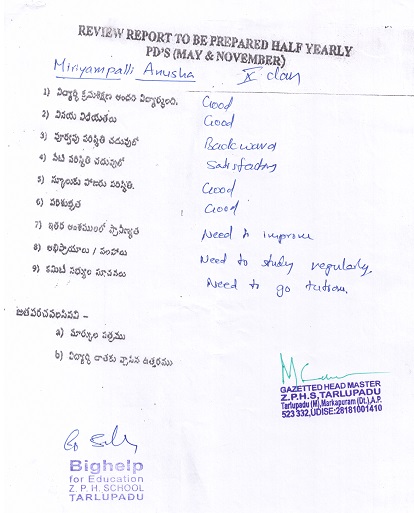 REVIEW REPORT TO BE PREPARED HALF YEARLY
PD'S (MAY & NOVEMBER)
Miriyampalli Anusha IX class
1) విద్యార్ధి క్రమశిక్షణ అందరి విద్యార్ధులది. Good
2) వినయ విధేయతలు Good
3) పూర్వపు పరిస్థితి చదువులో Backward
4) నేటి పరిస్థితి చదువులో Satisfactory
5) స్కూలుకు హాజరు పరిస్థితి. Good
6) పరిశుభ్రత Good
7) ఇతర అంశములలో ప్రావీణ్యత Need to improve
8) అభిప్రాయాలు / సలహాలు Need to study regularly.
9) కమిటీ సభ్యుల సూచనలు Need to go tution.
జతపరచవలసినవి -
a) మార్కుల పత్రము
b) విద్యార్ధి దాతకు వ్రాసిన ఉత్తరము
GAZETTED HEAD MASTER
Z.P.H.S, TARLUPADU
Tarlupadu (M), Markapuram (Dt.), A.P.
523 332, UDISE:28181001410
Bighelp
for Education
Z. P. H. SCHOOL
TARLUPADU